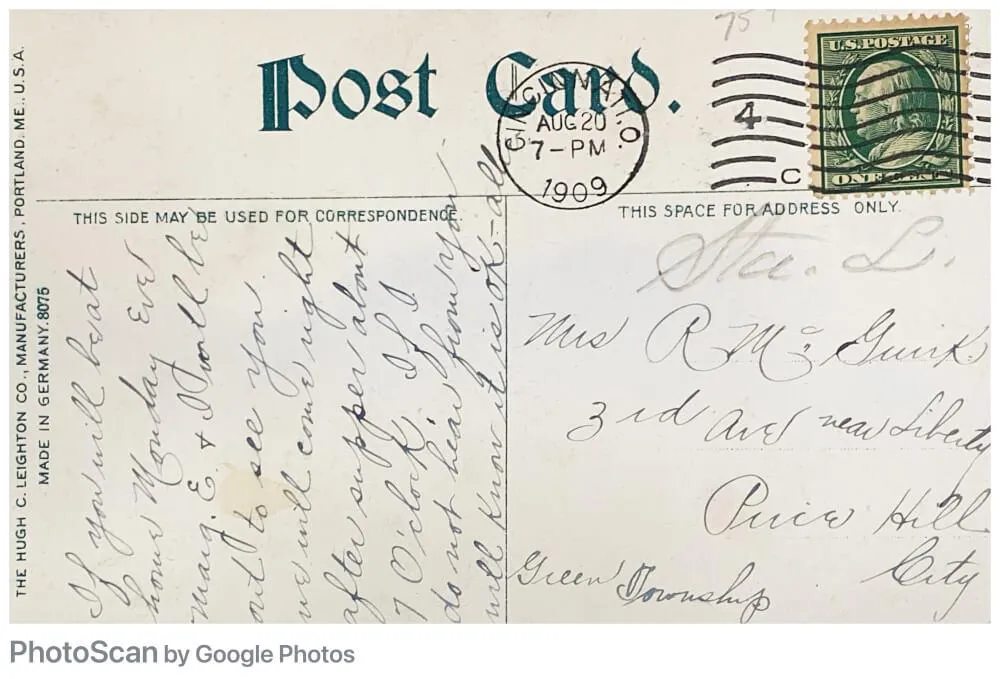 75
Post Card.
CINCINNATI, O.
AUG 20
7-PM
1909
4
C
U.S. POSTAGE
ONE CENT
THE HUGH C. LEIGHTON CO., MANUFACTURERS, PORTLAND, ME., U.S.A.
MADE IN GERMANY. 8075
THIS SIDE MAY BE USED FOR CORRESPONDENCE.
If you will be at
home Monday Eve
E & I will be
out to see you
we will come right
after supper about
7 O'clock, If I
do not hear from you
will know it is OK - all
THIS SPACE FOR ADDRESS ONLY.
Sta. L.
Mrs R Mc Gurk
3rd Ave near Liberty
Price Hill
City
Green Township
PhotoScan by Google Photos